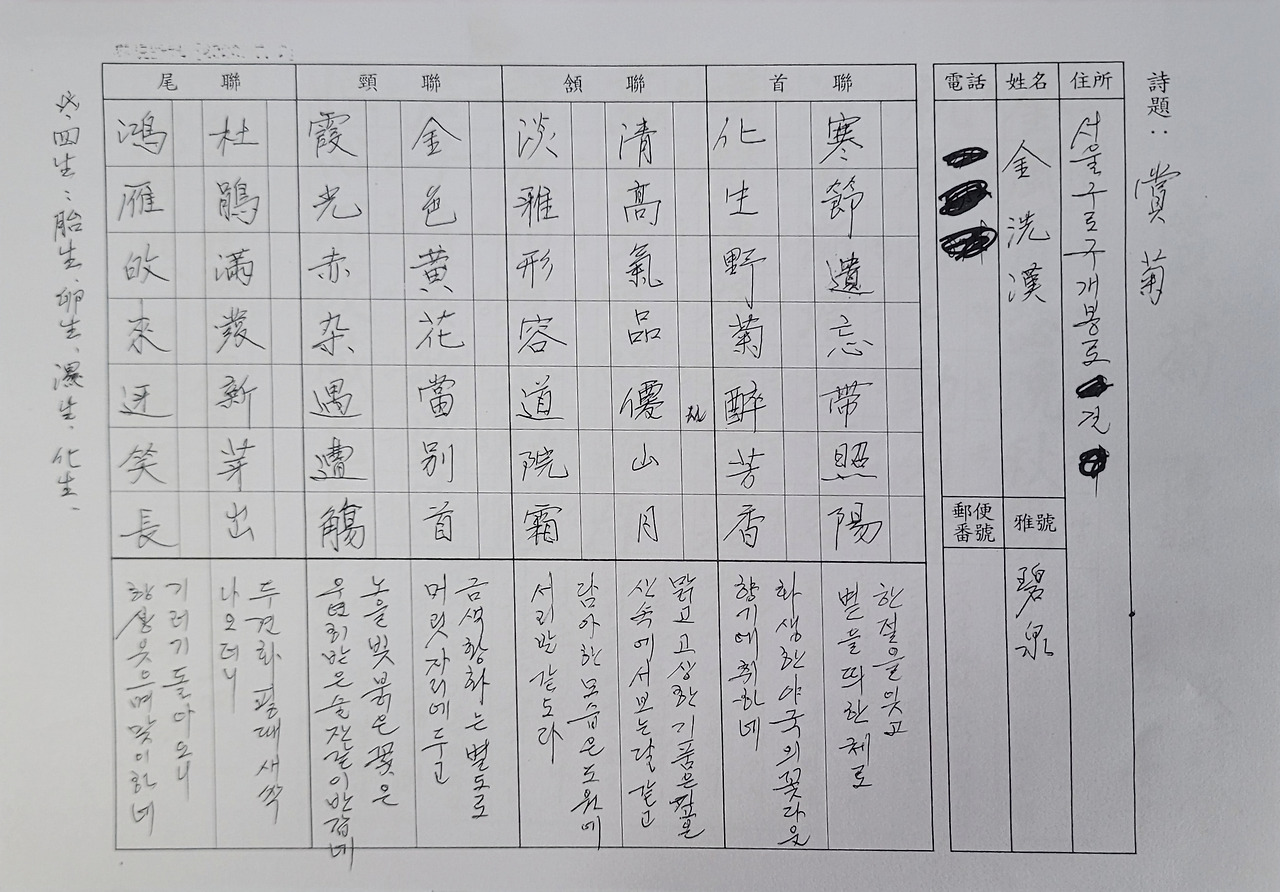 詩題: 賞菊
住所
서울 구로구 개봉로
姓名
金洗漢
電話
雅號
碧泉
郵便番號
首聯
寒節遺忘帶照陽
化生野菊醉芳香
한절을 잊고
볕을 띄 한 체로
화생한 야국의 꽃다운
향기에 취하네
頷聯
清高氣品優山月
淡雅形容道院霜
맑고 고상한 기품은 깊은
산속에서 보는 달 같고
담아한 모습은 도원에
서리발 같도다
頸聯
金色黃花當別首
霞光赤朵遇遭觴
금색 황화는 별도로
머릿자리에 두고
노을빛 붉은 꽃은
우연히 받은 술잔같이 반갑네
尾聯
杜鵑滿發新芽出
鴻雁啟來迓笑長
두견화 필때 새싹
나오더니
기러기 돌아오니
항상 웃으며 맞이하네
四生: 胎生、卵生、濕生、化生、